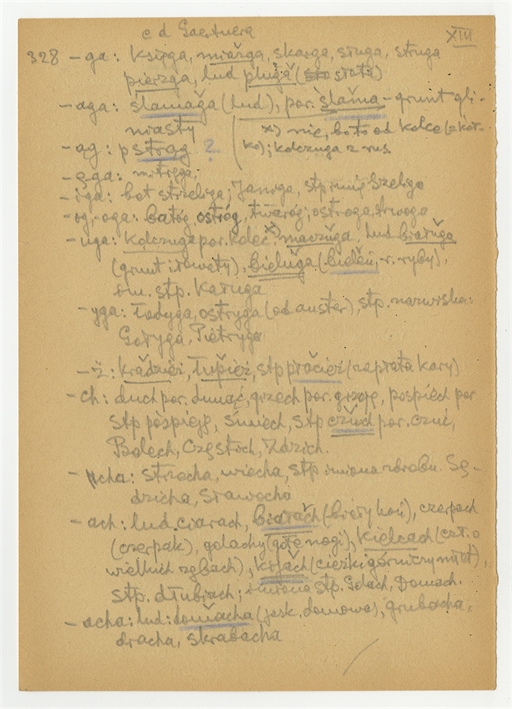 c d Gaertnera XIII
328 - ga: księga, miarga, skarga, sługa, struga
pierzga, lud pluga (
- aga: słamaga (lud), por. słama - grunt gli-
niasty
x) nie, bo to od kolce (= kół-
ko); kolczuga z rus
- ąg: pstrąg ?
- ęga: mitręga;
- iga: lud strzeliga; Janiga, stp imię Szeliga
- og, -oga: batog, ostrog, twaróg; ostroga, trwoga
- uga: kolczuga por. kolec x), maczuga, lud białuga
(grunt iłowaty), bieluga (bieleń - r. ryby),
im. stp. Karuga
- yga: łodyga, ostryga (od auster), stp. nazwiska:
Gołyga, Pietryga
- ż: kradzież, łupież, stp prócież (zapłata kary)
- ch: duch por. dunąć, grzech por. grzeję, pospiech por
stp pospieję, śmiech, stp czuch por. czuć,
Bolech, Częstoch, Zdzich.
- cha: strzecha, wiecha, stp imiona Sę-
dzicha, Sławocha
- ach: lud. ciarach, białach (biały koń), czerpach
(czerpak), golachy (gołe nogi), kielcach (czł. o
wielkich zębach), kijach (ciężki górniczy młot),
stp. dłubiach; imiona stp. Golach, Domach.
- acha: lud: domacha (jask. domowa), grubacha,
dracha, skrabacha